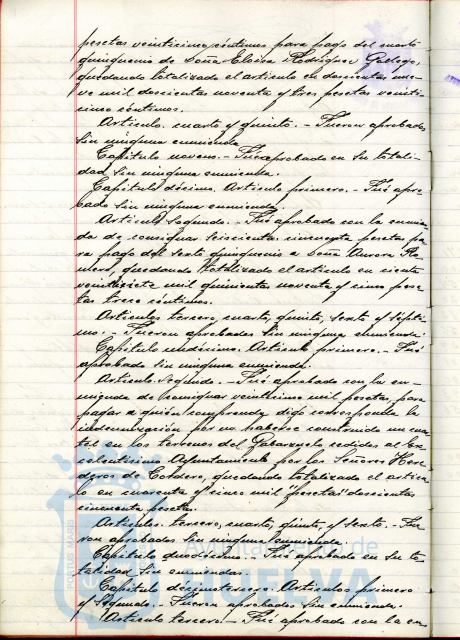 pesetas veinticinco céntimos para pago del cuarto
quinquenio de Doña Eloisa Rodriguez Gallego,
quedando totalizado el articulo en doscientas nue-
ve mil doscientas noventa y tres pesetas veinti-
cinco céntimos.
Articulo. cuarto y quinto. - Fueron aprobados
sin ninguna enmienda.
Capitulo noveno. - Fué aprobado en su totali-
dad, sin ninguna enmienda.
Capitulo décimo. Articulo primero. - Fué apro-
bado sin ninguna enmienda.
Articulo segundo. - Fué aprobado con la enmien-
da de consignar seiscientas cincuenta pesetas pa-
ra pago del sexto quinquenio a Doña Aurora Ro-
mero, quedando totalizado el articulo en ciento
veintisiete mil quinientas noventa y cinco pese-
tas trece céntimos.
Articulos tercero, cuarto, quinto, sexto y sépti-
mo. - Fueron aprobados sin ninguna enmienda.
Capitulo undécimo. Articulo primero. - Fué
aprobado sin ninguna enmienda.
Articulo segundo. - Fué aprobado con la en-
mienda de consignar veinticinco mil pesetas, para
pagar a quién comprenda, digo corresponda la
indemnización por no haberse construido un cuar-
tel en los terrenos del cedidos al Ex-
celentisimo Ayuntamiento por los Señores Here-
deros de Cordero, quedando totalizado el articu-
lo en cuarenta y cinco mil "pesetas" doscientas
cincuenta pesetas.
Articulos tercero, cuarto, quinto, y sexto. - Fue-
ron aprobados sin ninguna enmienda.
Capitulo duodécimo. - Fué aprobado en su to-
talidad sin enmiendas.
Capitulo décimotercero. Articulos primero
y segundo. - Fueron aprobados sin enmienda.
Articulo tercero. - Fué aprobado con la en-
PORTUS MARIS
Ayuntamiento de
HUELVA